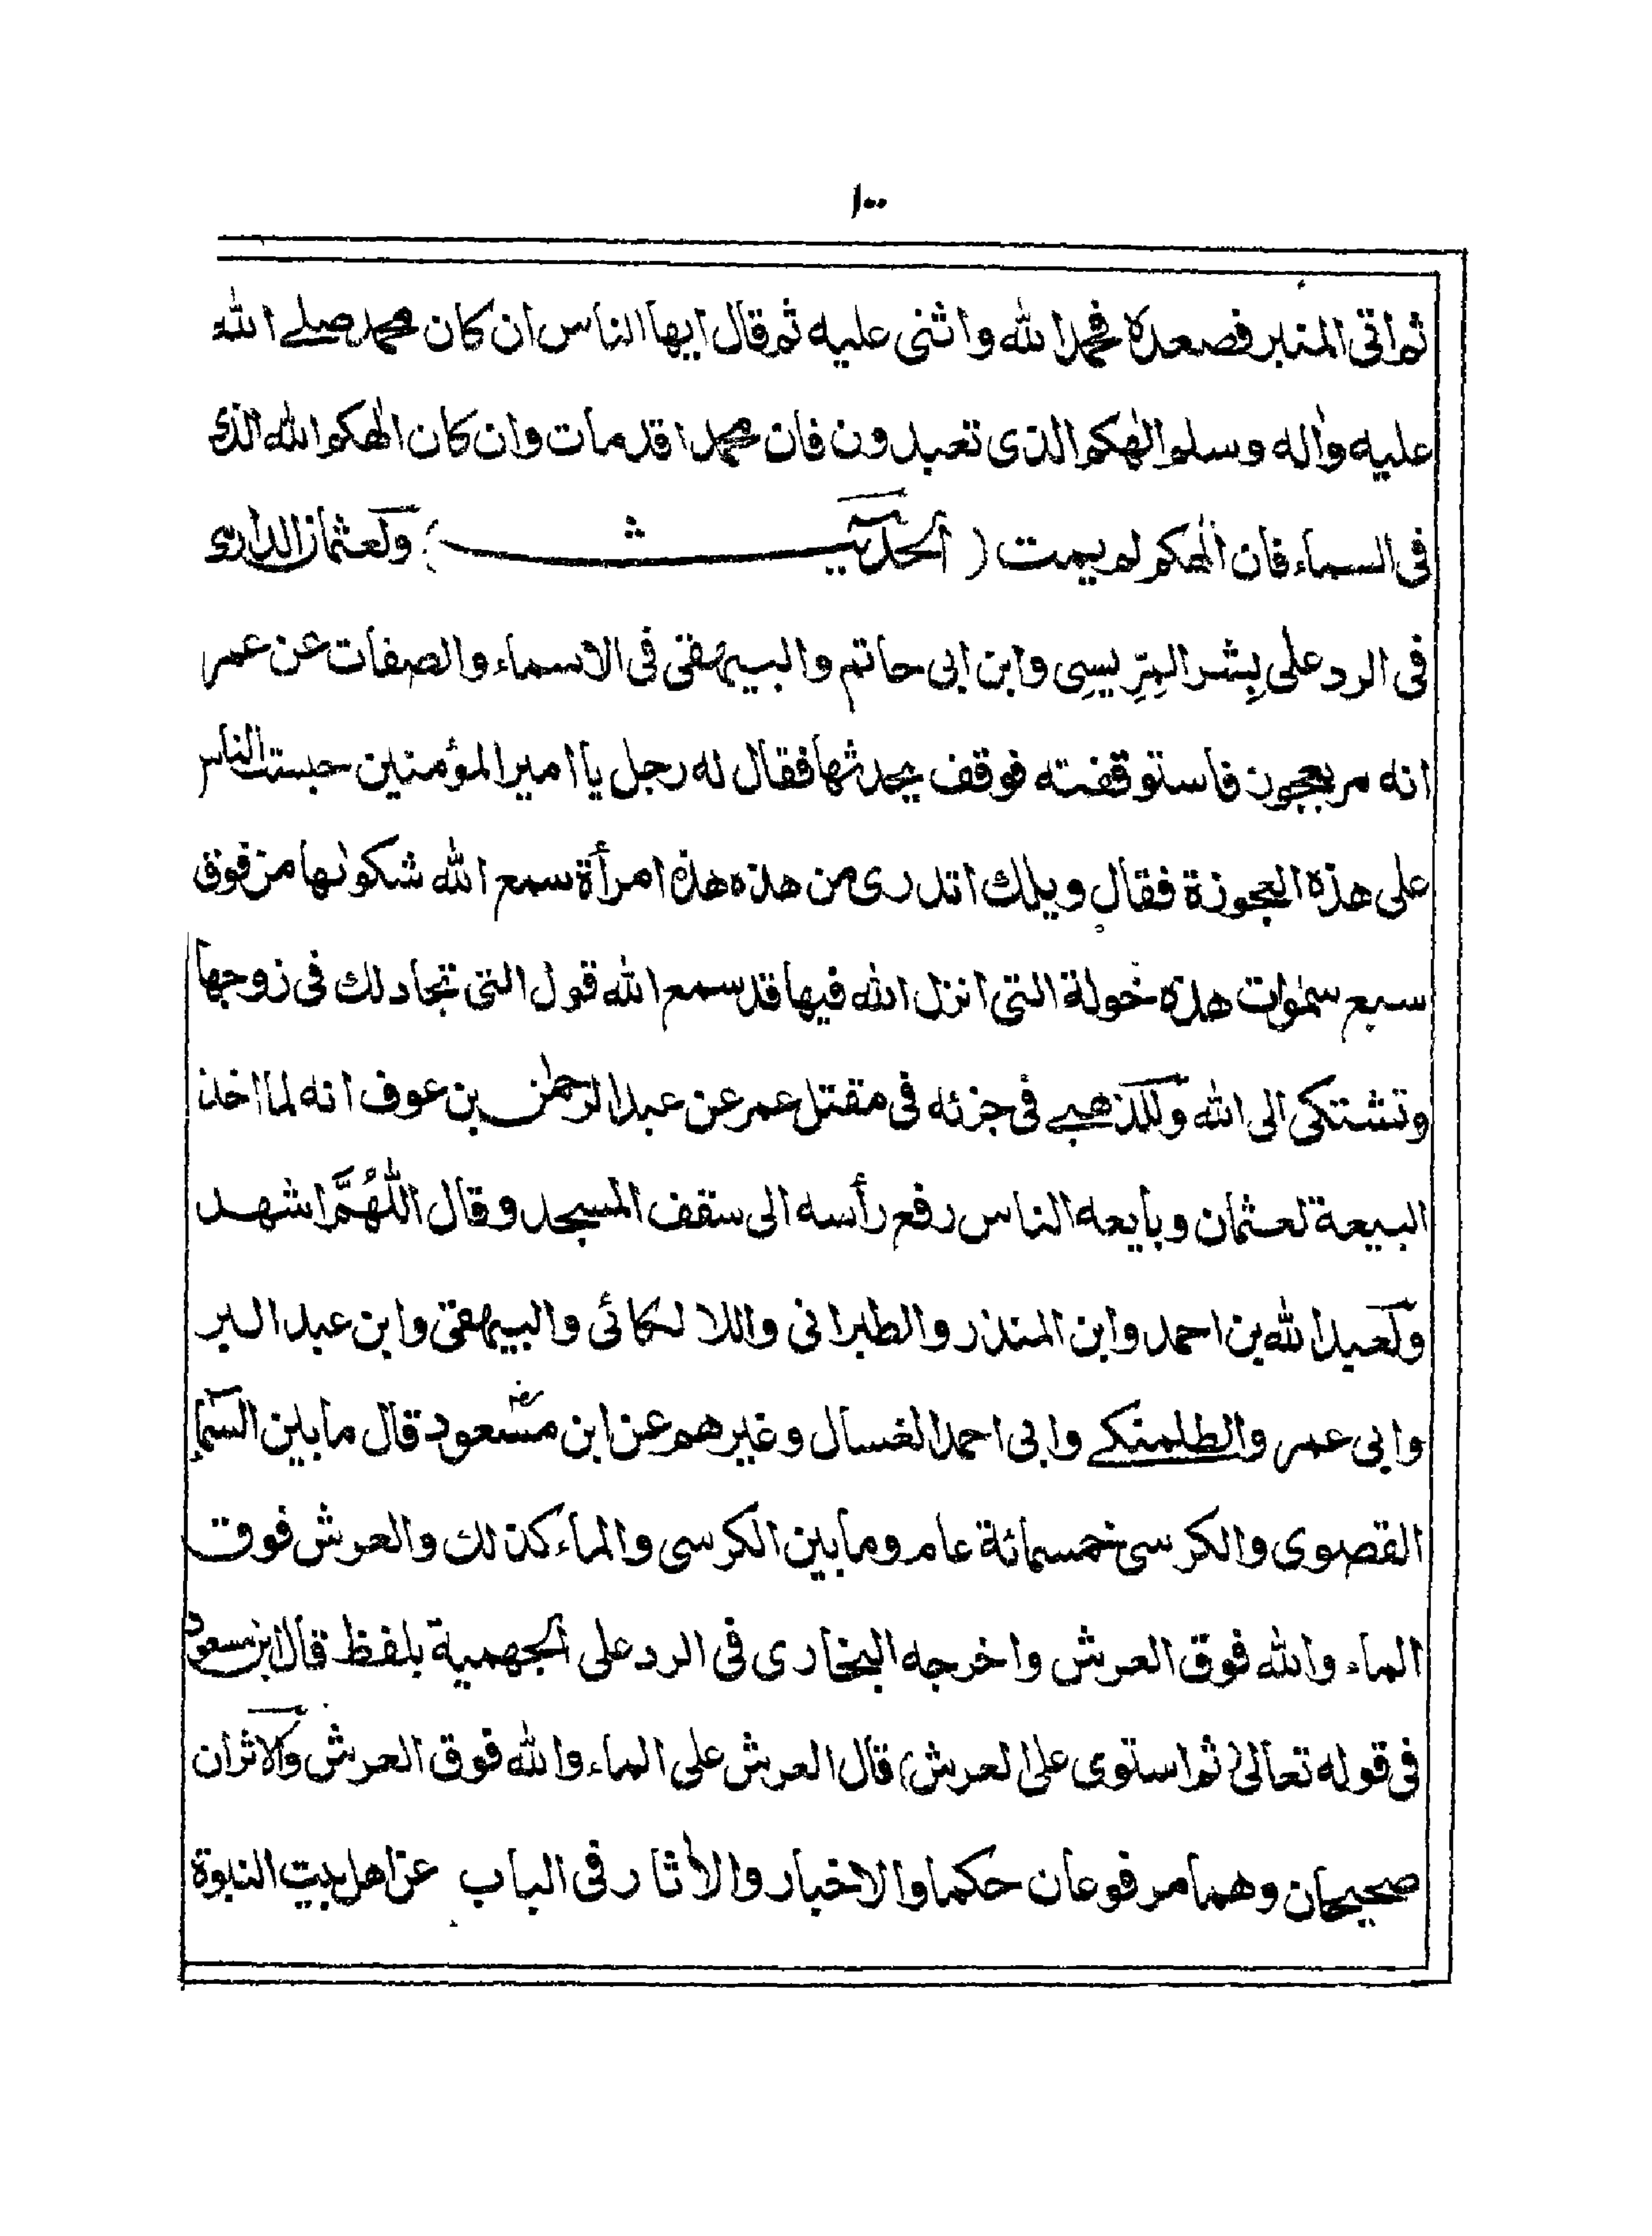 ١٠٠
ثم اتى المنبر فصعده فحمد الله واثنى عليه ثم قال ايها الناس ان كان محمد صلے الله
عليه واٰله وسلم الٰهكم الذى تعبدون فان محمدا قد مات وان كان الٰهكم الله الذى
فى السماء فان الٰهكم لم يمت ( الحديث ) ولعثمان الدارمى
فى الرد على بِشر المِرِيسِى وابن ابى حاتم والبيهقى فى الاسماء والصفات عن عمر
انه مر بعجوز فاستوقفته فوقف يحدثها فقال له رجل يا امير المؤمنين حبست الناس
على هذه العجوزة فقال ويلك اتدرى من هذه هذه امرأة سمع الله شكوٰىها من فوق
سبع سمٰوات هذه خولة التى انزل الله فيها قد سمع الله قول التى تجادلك فى زوجها
وتشتكى الى الله وللذهبے فى جزئه فى مقتل عمر عن عبد الرحمٰن بن عوف انه لما اخذ
البيعة لعثمان وبايعه الناس رفع رأسه الى سقف المسجد وقال اللّٰهُمَّ اشهد
ولعبد الله بن احمد وابن المنذر والطبرانى واللالكائى والبيهقى وابن عبد البر
وابى عمر والطلمنكے وابى احمد الغسال وغيرهم عن ابن مسعود رضـ قال ما بين السماء
القصوى والكرسى خمسمائة عام وما بين الكرسى والماء كذلك والعرش فوق
الماء والله فوق العرش واخرجه البخارى فى الرد على الجهمية بلفظ قال ابن مسعود
فى قوله تعالىٰ (ثم استوى على العرش) قال العرش على الماء والله فوق العرش والاثران
صحيحان وهما مرفوعان حكما والاخبار والاٰثار فى الباب عن اهل بيت النبوة